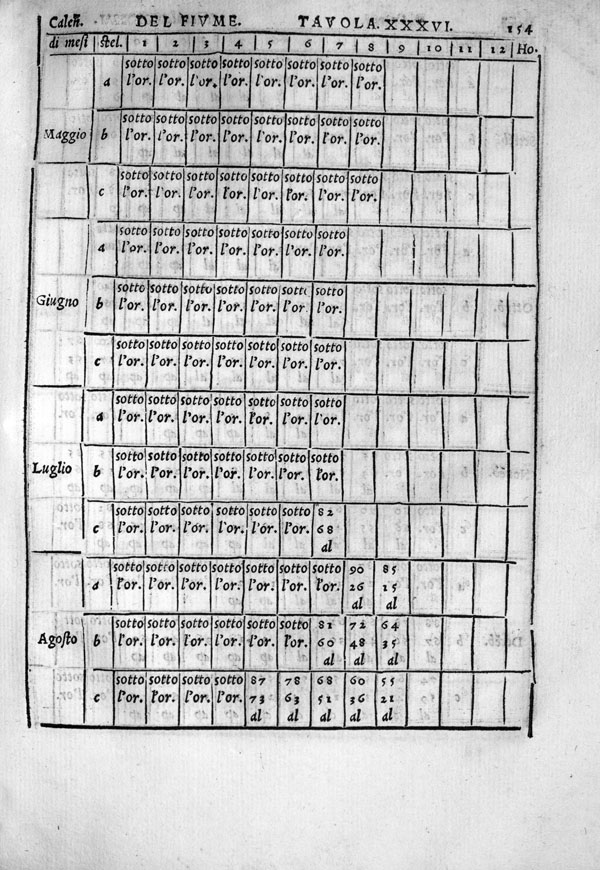 Caleñ. DEL FIVME. TAVOLA.XXXVI. 154
di mesi stel. 1 2 3 4 5 6 7 8 9 10 11 12 Ho.
sotto sotto sotto sotto sotto sotto sotto sotto
a l'or. l'or. l'or. l'or. l'or. l'or. l'or. l'or.
sotto sotto sotto sotto sotto sotto sotto sotto
Maggio b l'or. l'or. l'or. l'or. l'or. l'or. l'or. l'or.
sotto sotto sotto sotto sotto sotto sotto sotto
c l'or. l'or. l'or. l'or. l'or. l'or. l'or. l'or.
sotto sotto sotto sotto sotto sotto sotto
a l'or. l'or. l'or. l'or. l'or. l'or. l'or.
sotto sotto sotto sotto sotto sotto sotto
Giugno b l'or. l'or. l'or. l'or. l'or. l'or. l'or.
sotto sotto sotto sotto sotto sotto sotto
c l'or. l'or. l'or. l'or. l'or. l'or. l'or.
sotto sotto sotto sotto sotto sotto sotto
a l'or. l'or. l'or. l'or. l'or. l'or. l'or.
sotto sotto sotto sotto sotto sotto sotto
Luglio b l'or. l'or. l'or. l'or. l'or. l'or. l'or.
sotto sotto sotto sotto sotto sotto 82
c l'or. l'or. l'or. l'or. l'or. l'or. 68
al
sotto sotto sotto sotto sotto sotto sotto 90 85
a l'or. l'or. l'or. l'or. l'or. l'or. l'or. 26 15
al al
sotto sotto sotto sotto sotto sotto 81 72 64
Agosto b l'or. l'or. l'or. l'or. l'or. l'or. 60 48 35
al al al
sotto sotto sotto sotto 87 78 68 60 55
c l'or. l'or. l'or. l'or. 73 63 51 36 21
al al al al al